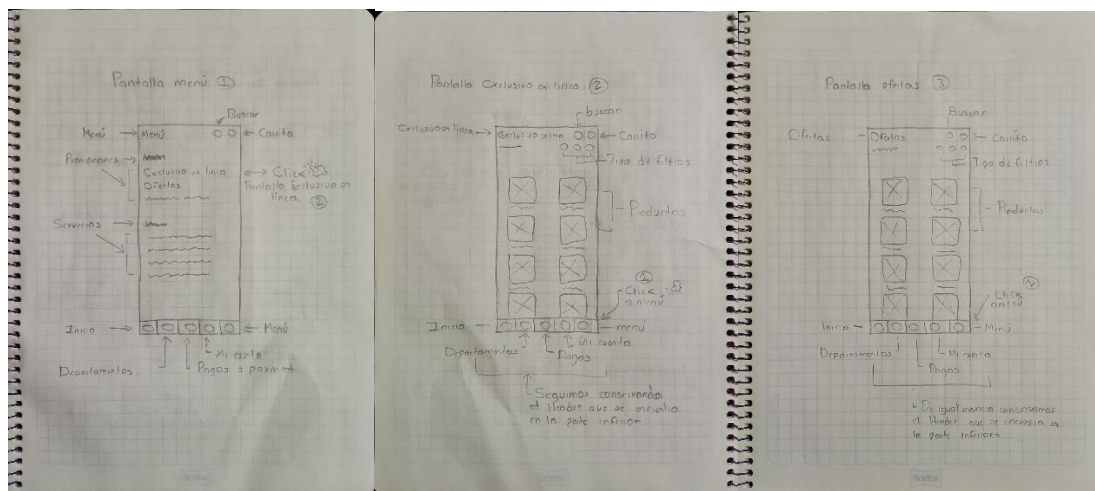 Pantalla menú ①
Buscar
Menú
Menú
Carrito
Promociones
Exclusivo en línea
Ofertas
Click
Pantalla Exclusivo en
línea ②
Servicios
Inicio
Menú
Mi cuenta
Departamentos
Pagos
Pantalla Exclusivo en línea ②
buscar
Exclusivo en línea
Exclusivo en línea
Carrito
Tipo de filtros
Productos
①
Click
a menú
Inicio
menú
Mi cuenta
Departamentos
Pagos
Seguimos conservando
el Header que se encuentra
en la parte inferior
Pantalla ofertas ③
Buscar
Ofertas
Ofertas
Carrito
Tipo de filtros
Productos
Click
a menú
Inicio
Menú
Mi cuenta
Departamentos
Pagos
De igual manera conservamos
el Header que se encuentra en
la parte inferior
Scribe
Scribe
Scribe